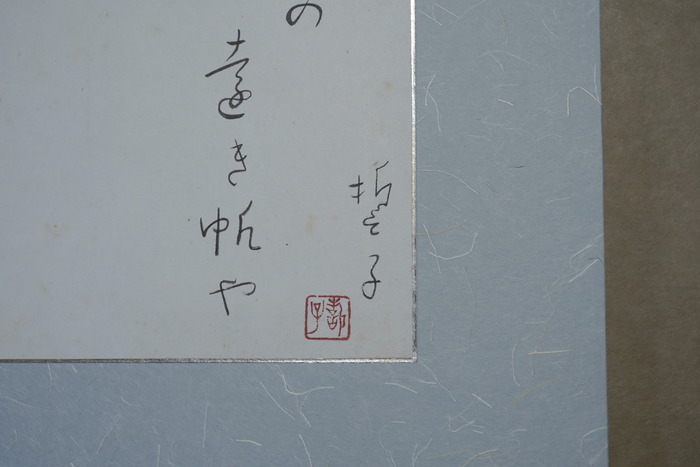 誓子
の
遠き帆や